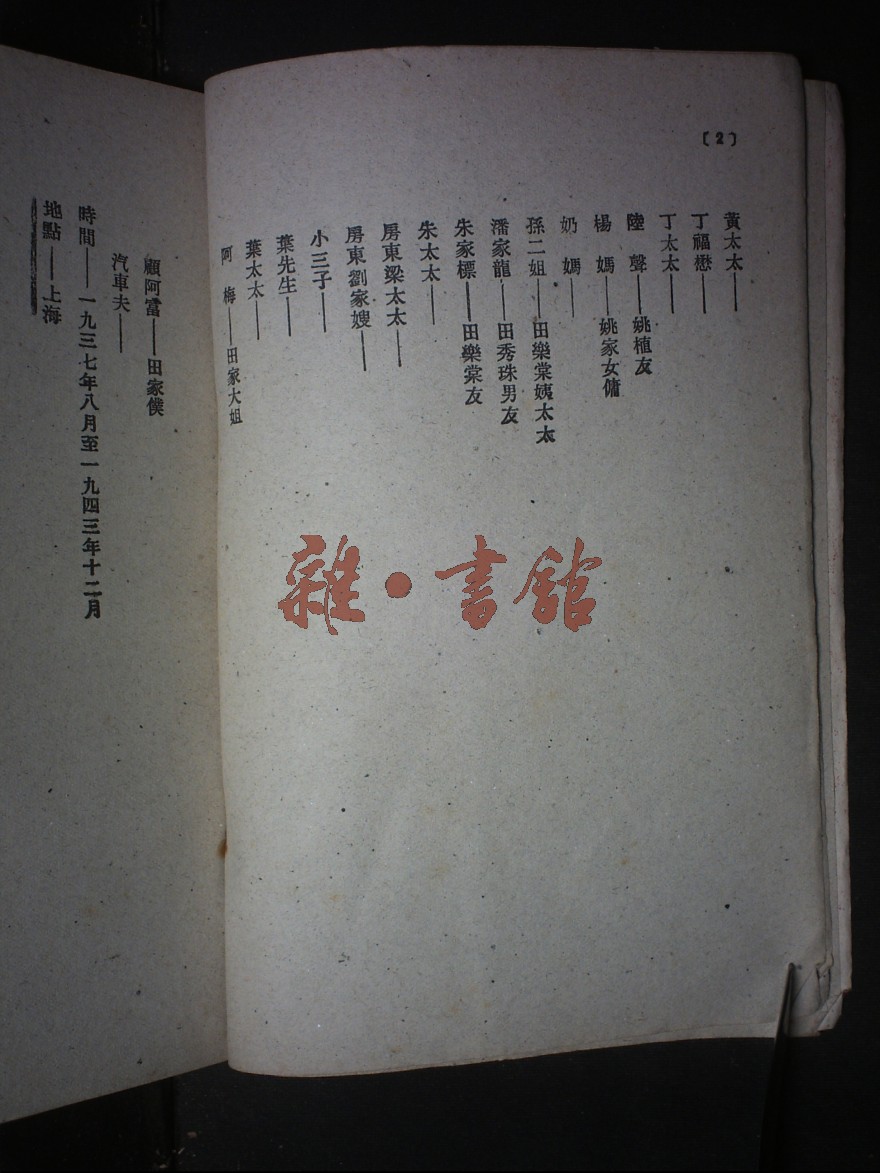 〔2〕
黃太太——
丁福懋——
丁太太——
陸　聲——姚植友
楊　媽——姚家女傭
奶　媽——
孫二姐——田樂棠姨太太
潘家龍——田秀珠男友
朱家標——田樂棠友
朱太太——
房東梁太太——
房東劉家嫂——
小三子——
葉先生——
葉太太——
阿　梅——田家大姐
顧阿富——田家僕
汽車夫——
時間——一九三七年八月至一九四三年十二月
地點——上海
雜·書館